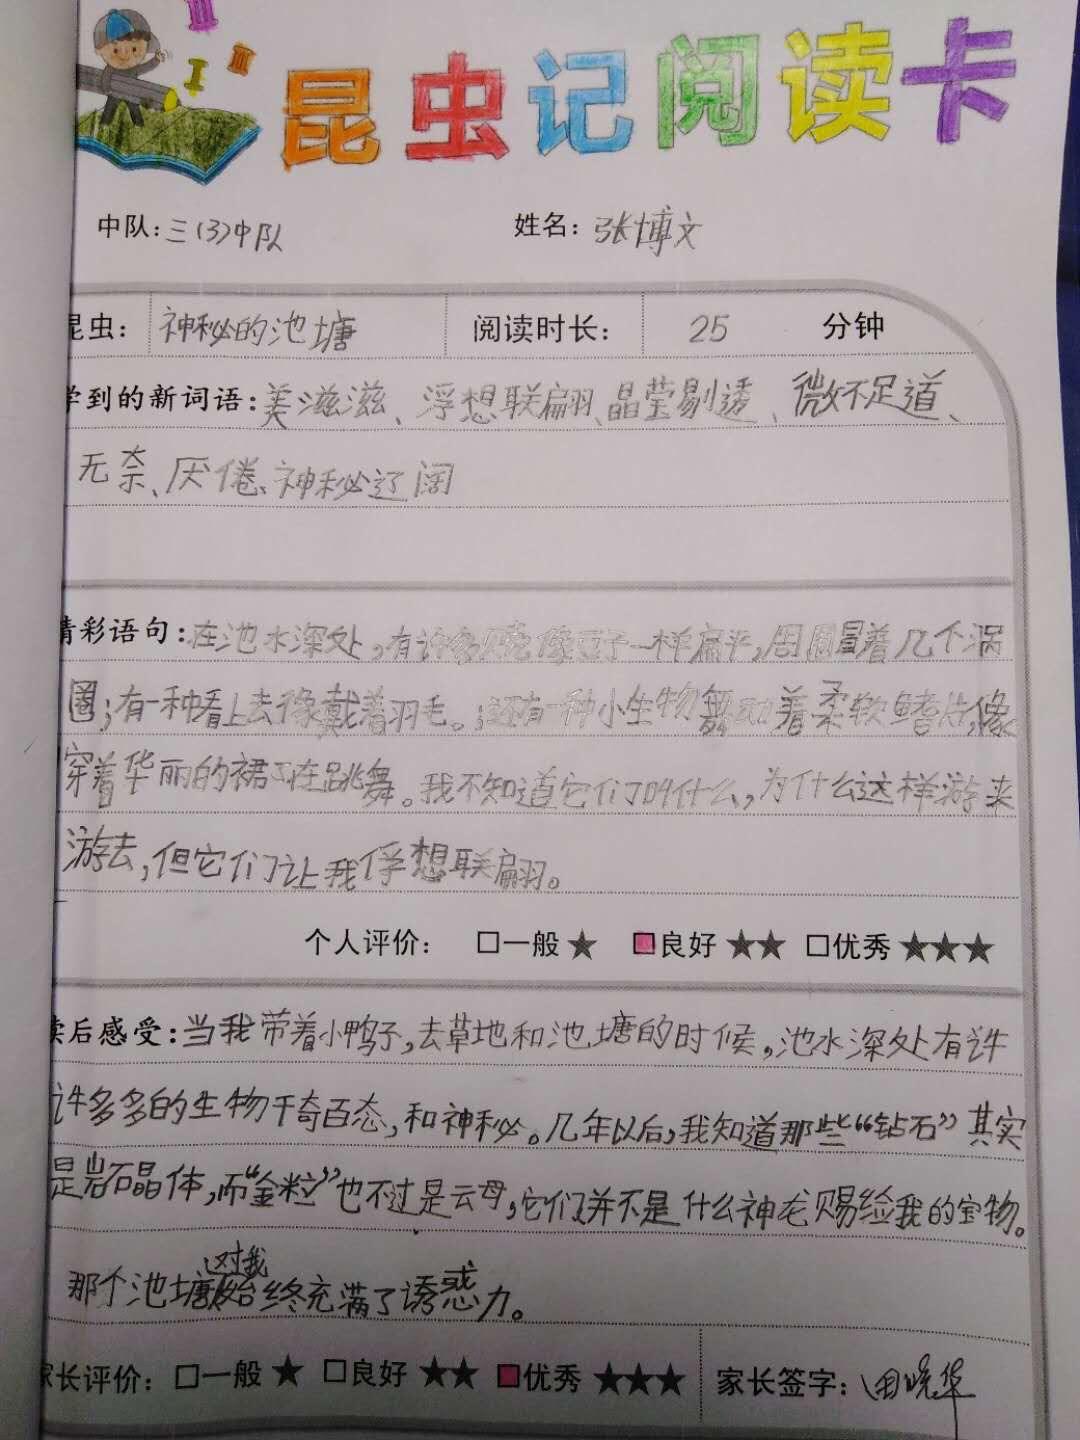 昆虫记阅读卡
中队:三(3)中队 姓名:张博文
昆虫: 神秘的池塘 阅读时长: 25 分钟
学到的新词语:美滋滋、浮想联翩、晶莹剔透、微不足道、
无奈、厌倦、神秘辽阔
精彩语句:在池水深处,有许多贝壳像豆子一样扁平,周围冒着几个涡
圈;有一种看上去像戴着羽毛。;还有一种小生物舞动着柔软鳍片,像
穿着华丽的裙子在跳舞。我不知道它们叫什么,为什么这样游来
游去,但它们让我俘想联翩。
个人评价: □一般★ ■良好★★ □优秀★★★
读后感受:当我带着小鸭子,去草地和池塘的时候,池水深处有许
许多多的生物千奇百态,和神秘。几年以后,我知道那些“钻石”其实
是岩石晶体,而“金粒”也不过是云母,它们并不是什么神龙赐给我的宝物。
那个池塘这对我始终充满了诱惑力。
家长评价: □一般★ □良好★★ ■优秀★★★ 家长签字:田晓华